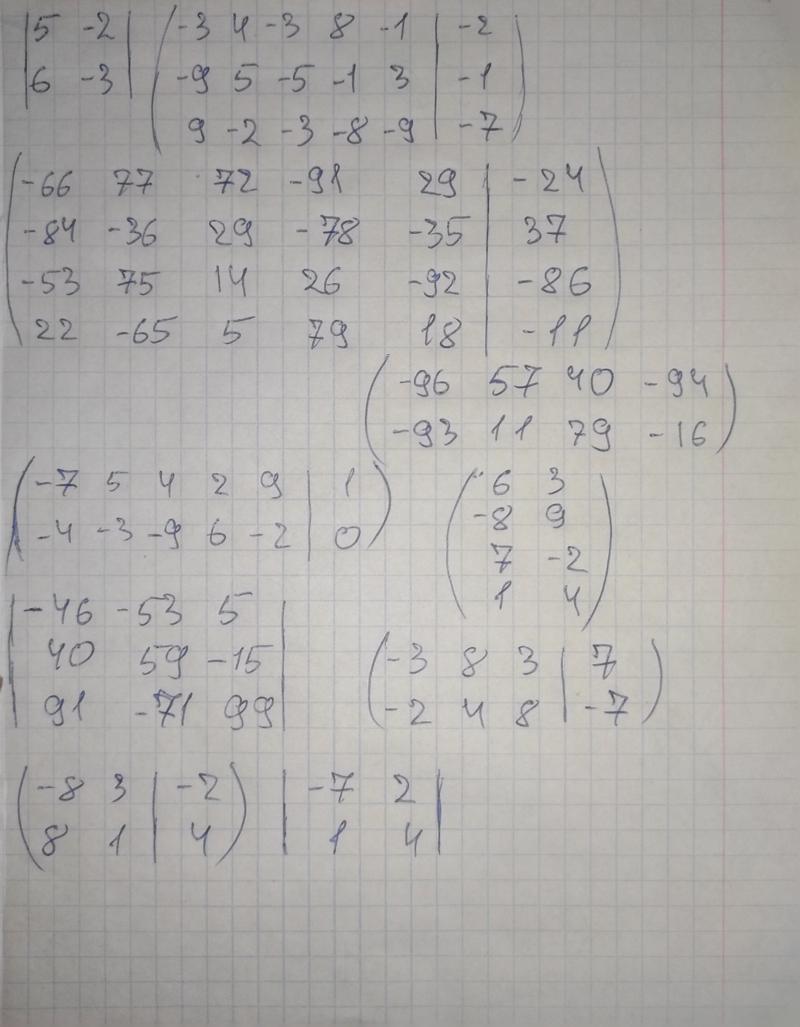 |5 -2| (-3 4 -3 8 -1 | -2
|6 -3| -9 5 -5 -1 3 | -1
9 -2 -3 -8 -9 | -7)
(-66 77 72 -91 29 | -24
-84 -36 29 -78 -35 | 37
-53 75 14 26 -92 | -86
22 -65 5 79 18 | -11)
(-96 57 40 -94
-93 11 79 -16)
(-7 5 4 2 9 | 1
-4 -3 -9 6 -2 | 0)
(6 3
-8 9
7 -2
1 4)
|-46 -53 5|
|40 59 -15|
|91 -71 99|
(-3 8 3 | 7
-2 4 8 | -7)
(-8 3 | -2) |-7 2|
(8 1 | 4) |1 4|